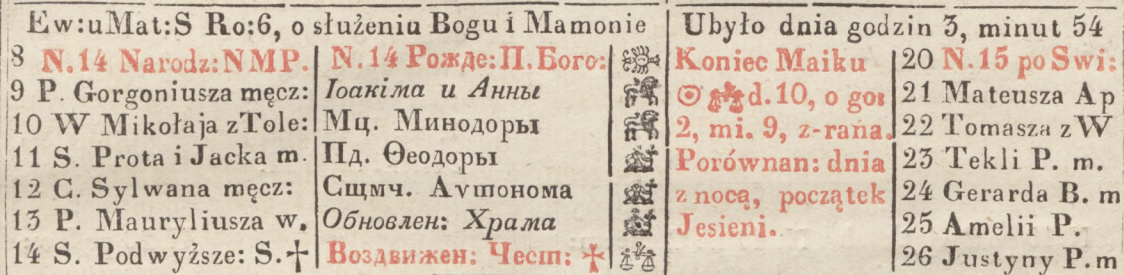 Ew:uMat:S Ro:6, o służeniu Bogu i Mamonie | Ubyło dnia godzin 3, minut 54
8 N.14 Narodz:NMP. | N.14 Рожде:П.Бого: | Koniec Maiku | 20 N.15 po Swi:
9 P. Gorgoniusza męcz: | Іоакіма и Анны | ☉ d.10, o go: | 21 Mateusza Ap
10 W Mikołaja zTole: | Мц. Минодоры | 2, mi. 9, z-rana. | 22 Tomasza z W
11 S. Prota i Jacka m. | Пд. Ѳеодоры | Porównan: dnia | 23 Tekli P. m.
12 C. Sylwana męcz: | Сщмч. Аѵтонома | z nocą, początek | 24 Gerarda B. m
13 P. Mauryliusza w. | Обновлен: Храма | Jesieni. | 25 Amelii P.
14 S. Podwyższe: S.✝ | Воздвижен: Чест: ✝ | 26 Justyny P.m